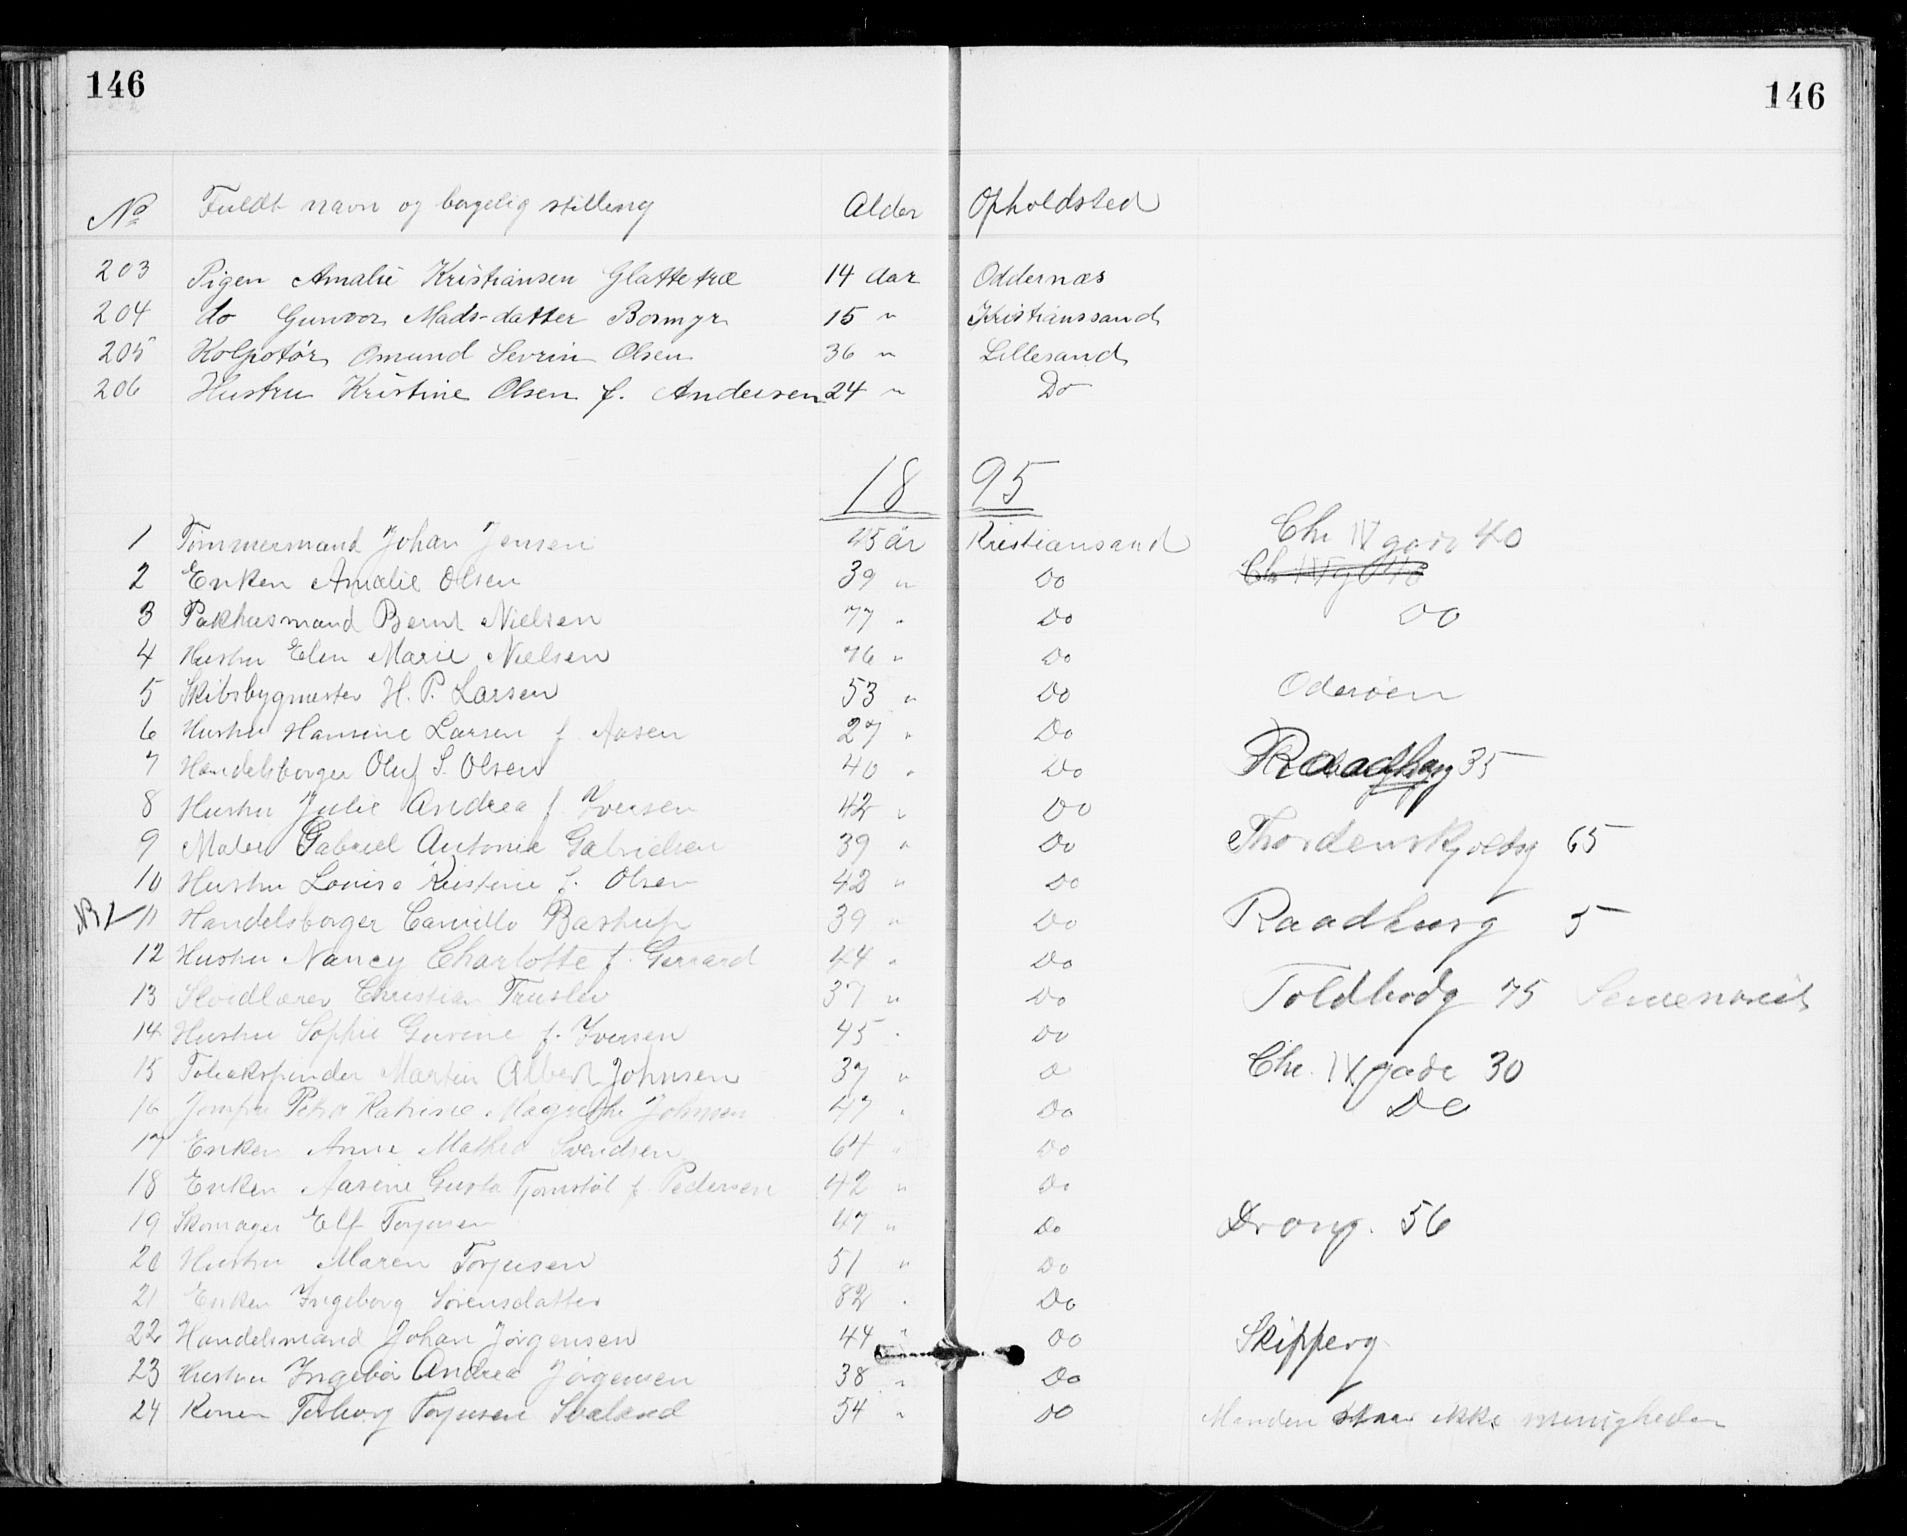 146 146
No Fuldt navn og borgelig stilling Alder Opholdsted
203 Pigen Amalie Kristiansen Glattetræ 14 aar Oddernæs
204 do Gunvor Mads-datter Bosmyr 15 " Kristianssand
205 Kolpotør Omund Sevrin Olsen 36 " Lillesand
206 Hustru Kristine Olsen f. Andersen 24 " Do
18 95
1 Tømmermand Johan Jensen 45 år Kristiansand Chr IV gade 40
2 Enken Amalie Olsen 39 " Do
3 Pakhusmand Bernt Nielsen 77 " Do Do
4 Hustru Elen Marie Nielsen 76 " Do
5 Skibsbygmester H. P. Larsen 53 " Do Oderøen
6 Hustru Hansine Larsen f. Aasen 27 " Do
7 Handelsborger Oluf S. Olsen 40 " Do Raadhusg 35
8 Hustru Julie Andrea f. Iversen 42 " Do
9 Maler Gabriel Antonie Gabrielsen 39 " Do Thordenskjoldsg 65
10 Hustru Lovise Kristine f. Olsen 42 " Do
NB 11 Handelsborger Camillo Bastrup 39 " Do Raadhusg 5
12 Hustru Nancy Charlotte f. Gerrard 44 " Do
13 Christian Truslev 37 " Do Toldbodg 75
14 Hustru Soffie Gurine f. Iversen 45 " Do
15 Tobakspinder Martin Albert Johnsen 37 " Do Chr. IV gade 30
16 Jomfru Petra Katrine Magrethe Johnsen 47 " Do Do
17 Enken Anne Mathea Svendsen 64 " Do
18 Enken Aasine Gusta Tjomstøl f. Pedersen 42 " Do
19 Skomager Elf Torjusen 47 " Do Drong. 56
20 Hustru Maren Torjusen 51 " Do
21 Enken Ingeborg Sørensdatter 82 " Do
22 Handelsmand Johan Jørgensen 44 " Do Skipperg
23 Hustru Ingebor Andrea Jørgensen 38 " Do
24 Konen Torborg Torjusen 54 " Do Manden staar ikke menigheden